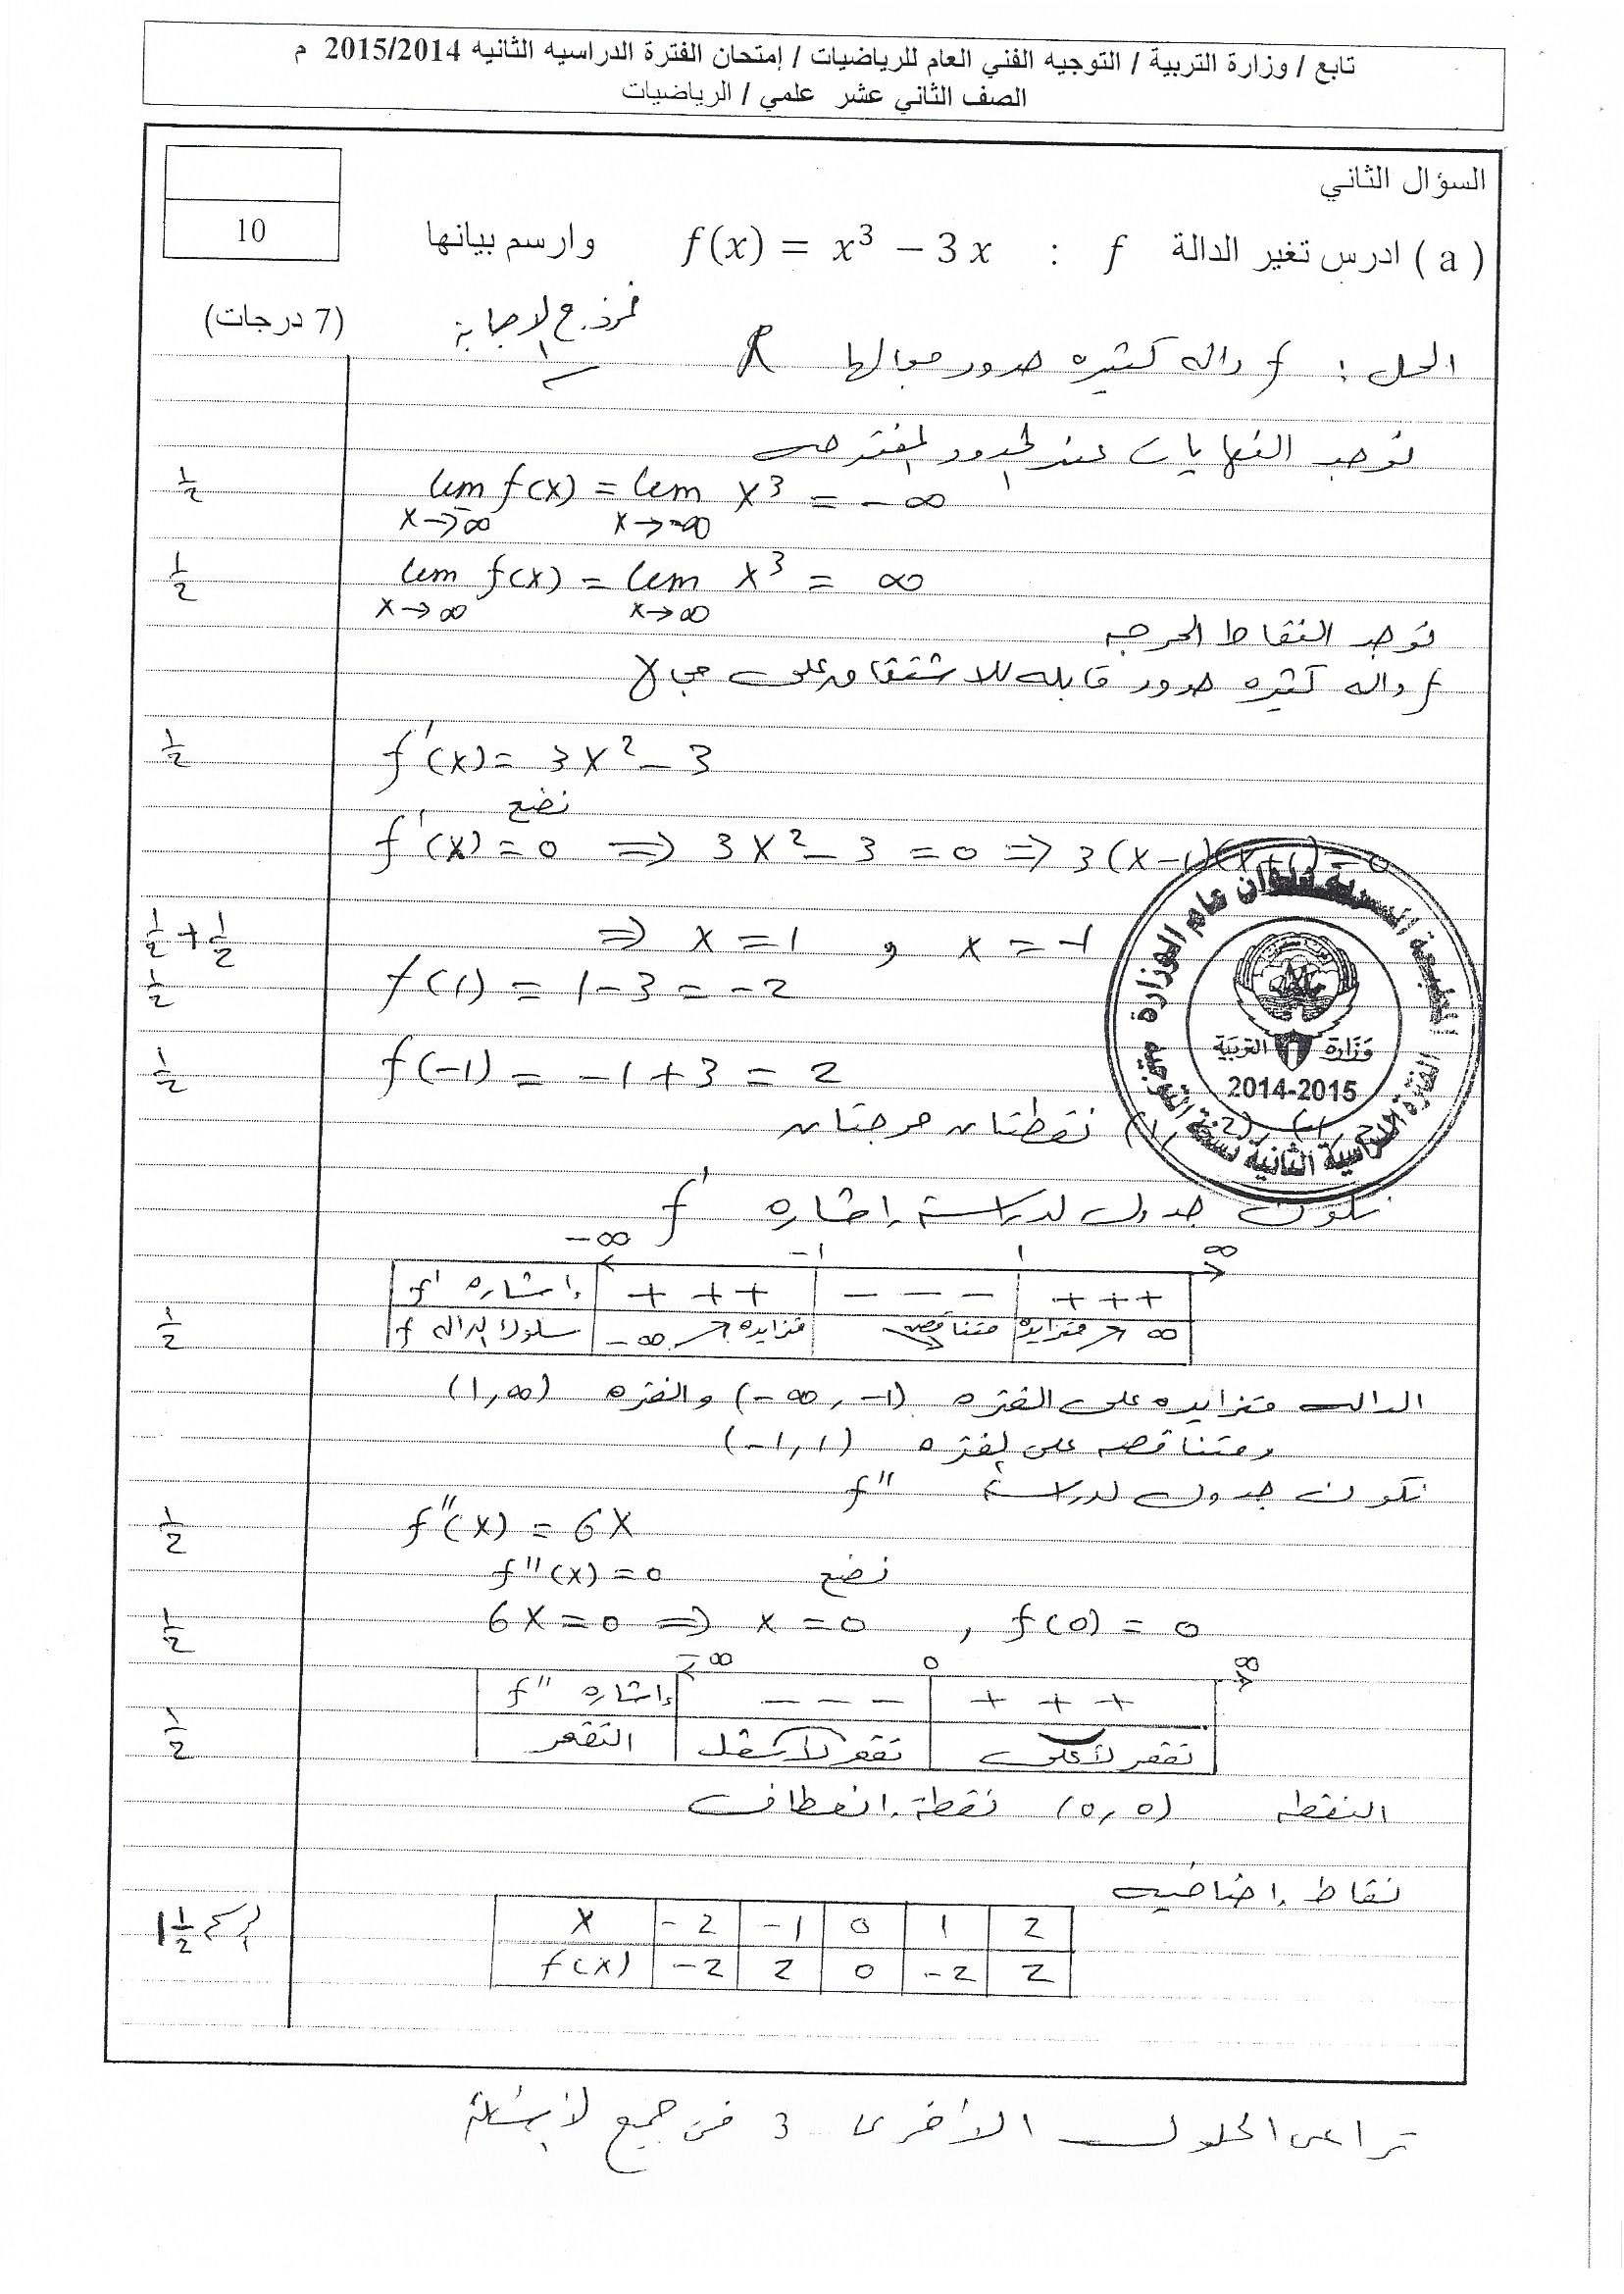 تابع / وزارة التربية / التوجيه الفني العام للرياضيات / إمتحان الفترة الدراسيه الثانيه 2015/2014 م
الصف الثاني عشر علمي / الرياضيات
السؤال الثاني
10
( a ) ادرس تغير الدالة f : f(x) = x³ − 3x وارسم بيانها
(7 درجات)
نموذج الاجابة
الحل : f داله كثيره حدود مجالها R
نوجد النهايات عند الحدود المفتوحه
½ lim f(x) = lim x³ = −∞
x→∞ x→−∞
½ lim f(x) = lim x³ = ∞
x→∞ x→∞
نوجد النقاط الحرجه
f داله كثيره حدود قابله للاشتقاق على مجالها
½ f'(x) = 3x² − 3
نضع
f'(x) = 0 ⇒ 3x² − 3 = 0 ⇒ 3(x−1)(x+1) = 0
½+½ ⇒ x = 1 و x = −1
½ f(1) = 1 − 3 = −2
½ f(−1) = −1 + 3 = 2
(1, −2), (−1, 2) نقطتان حرجتان
المطبعة السرية ديوان عام الوزارة
وزارة التربية
2014-2015
الفترة الدراسية الثانية
نكون جدول لدراسة إشاره f'
−∞ −1 1 ∞
إشاره f' + + + − − − + + +
½ سلوك الداله f −∞ متزايده متناقصه متزايده ∞
الداله متزايده على الفتره (−∞, −1) والفتره (1, ∞)
ومتناقصه على الفتره (−1, 1)
نكون جدول لدراسة f''
½ f''(x) = 6x
نضع f''(x) = 0
½ 6x = 0 ⇒ x = 0 , f(0) = 0
−∞ 0 ∞
إشاره f'' − − − + + +
½ التقعر تقعر لأسفل تقعر لأعلى
النقطه (0, 0) نقطة إنعطاف
نقاط إضافيه
x −2 −1 0 1 2
الرسم 1½ f(x) −2 2 0 −2 2
تراعى الحلول الأخرى في جميع الأسئلة